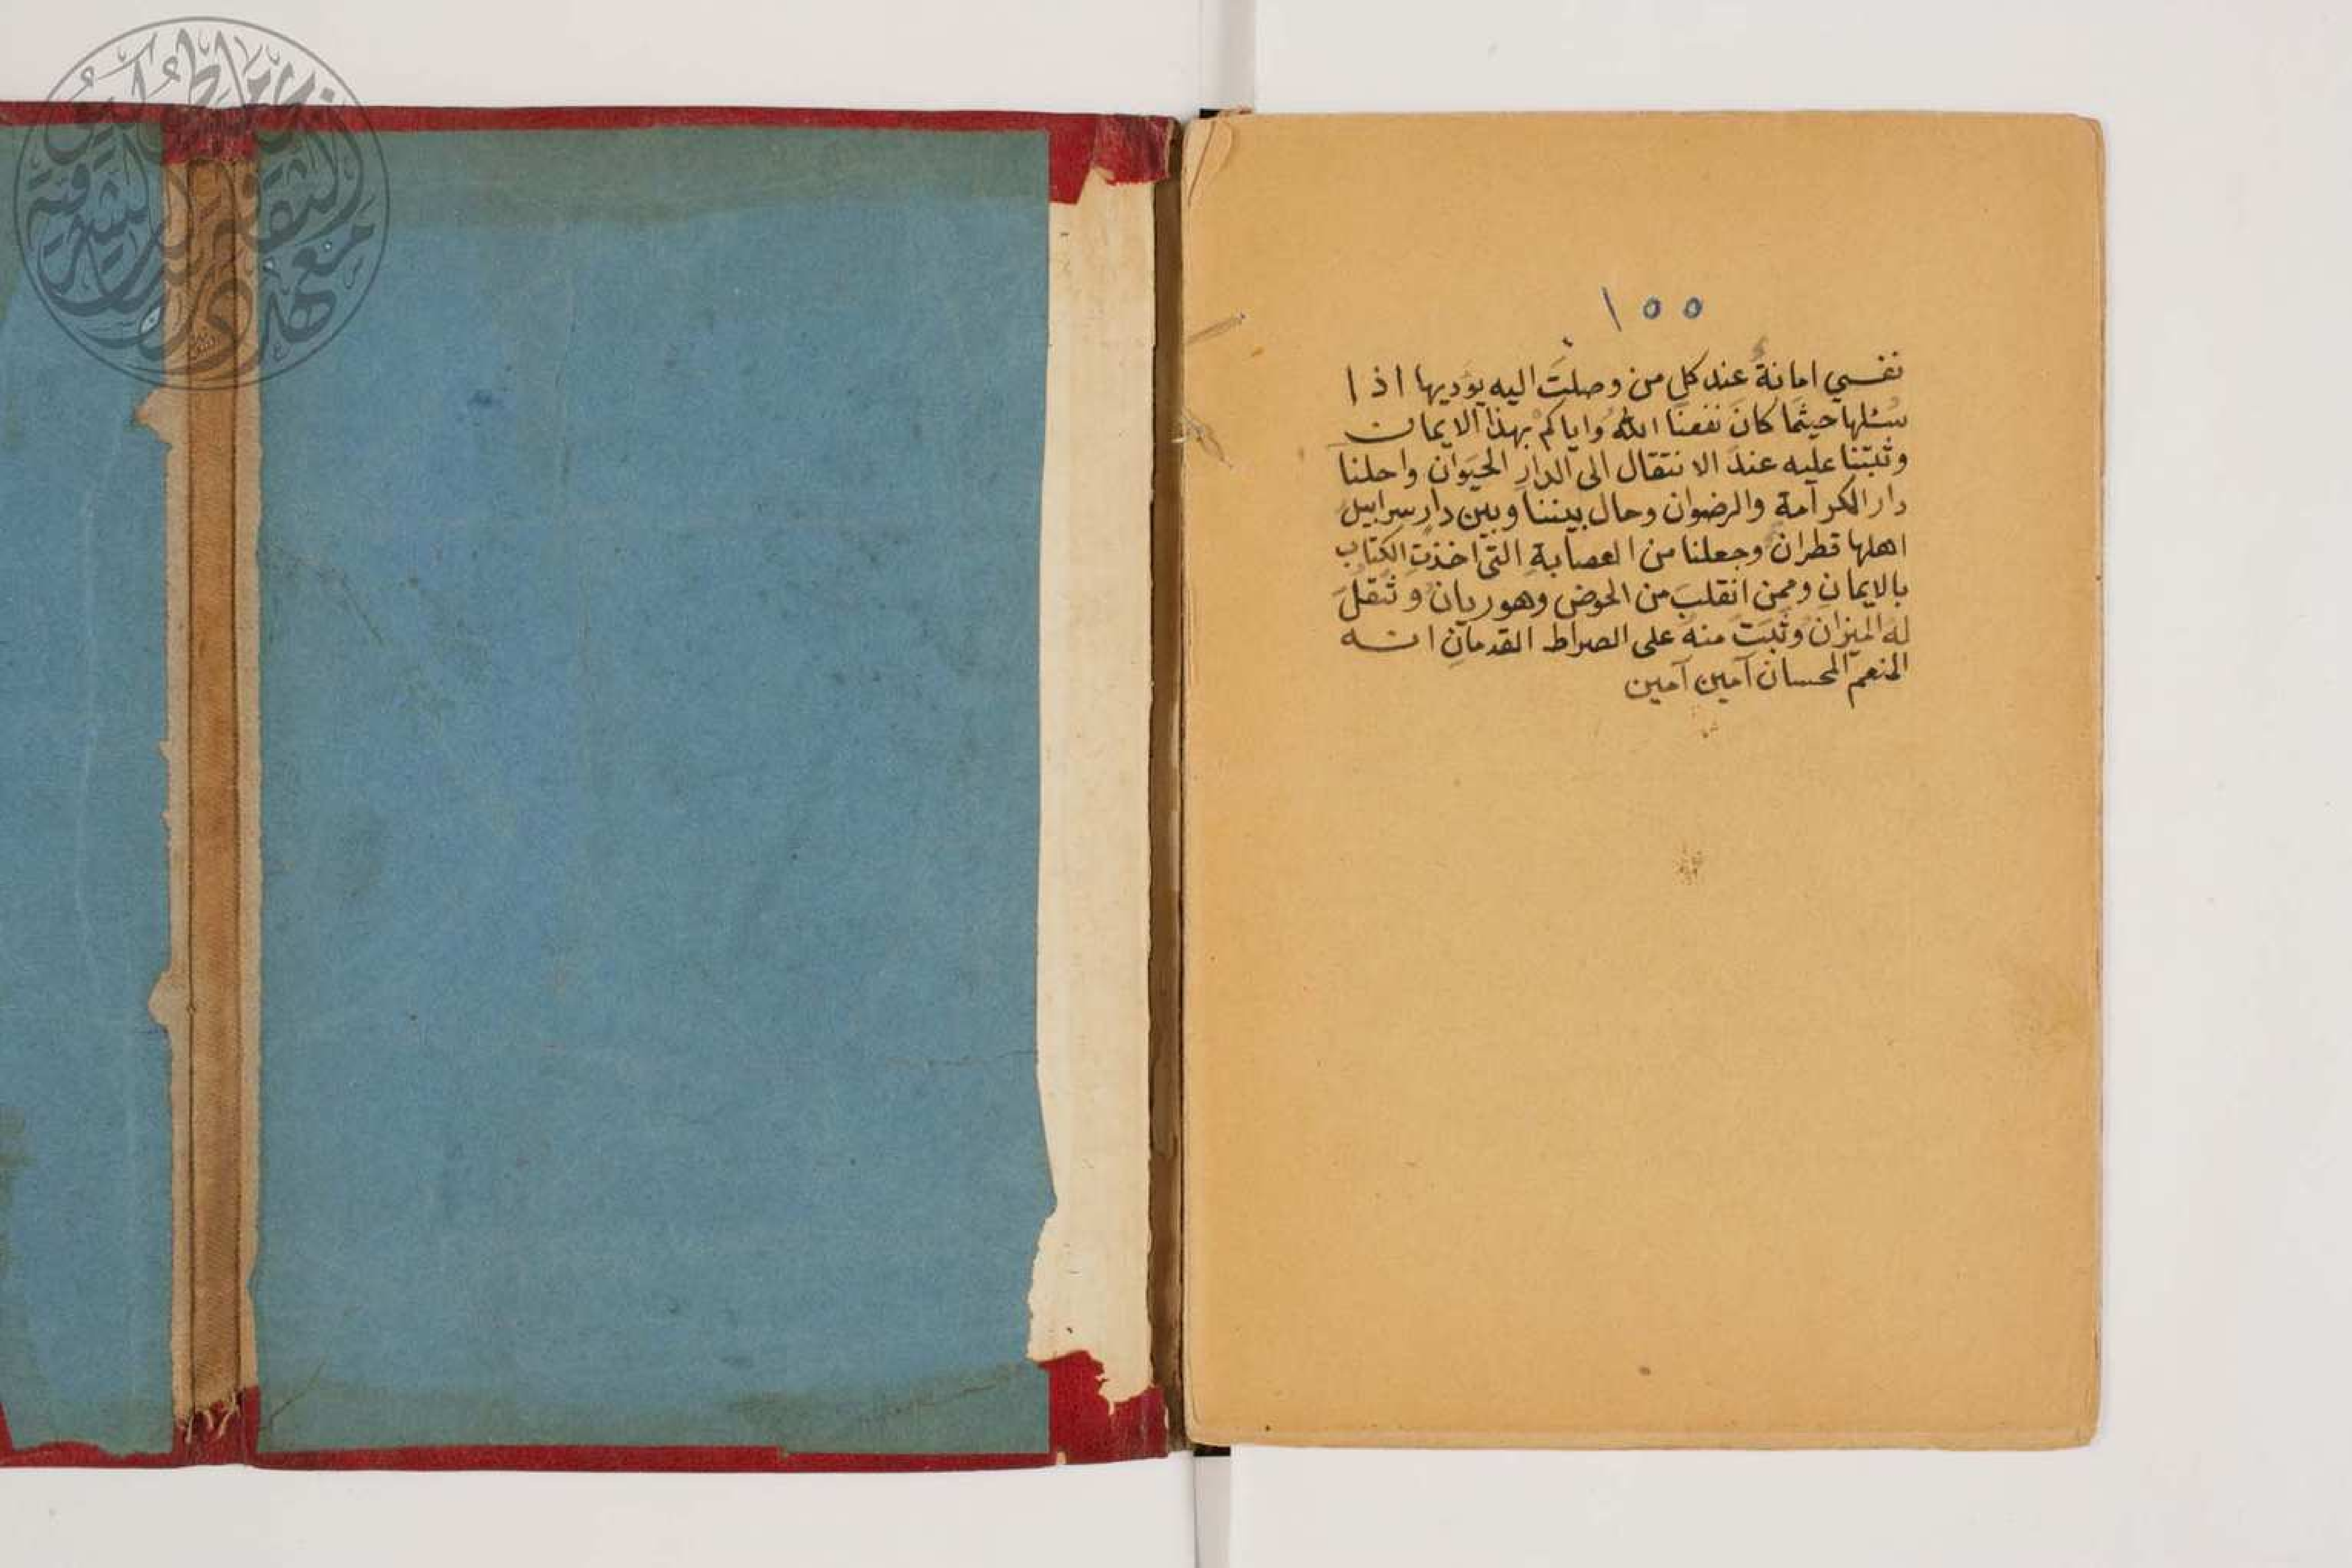 ١٥٥
نفسي امانةً عند كل من وصلت اليه يؤديها اذا
سئلها حيثما كان نفعنا الله واياكم بهذا الايمان
وثبتنا عليه عند الانتقال الى الدار الحيوان واحلنا
دار الكرامة والرضوان وحال بيننا وبين دار سرابيل
اهلها قطران وجعلنا من العصابة التي اخذت الكتاب
بالايمان وممن انقلب من الحوض وهو ريان وثقل
له الميزان وثبت منه على الصراط القدمان انه
المنعم المحسان آمين آمين